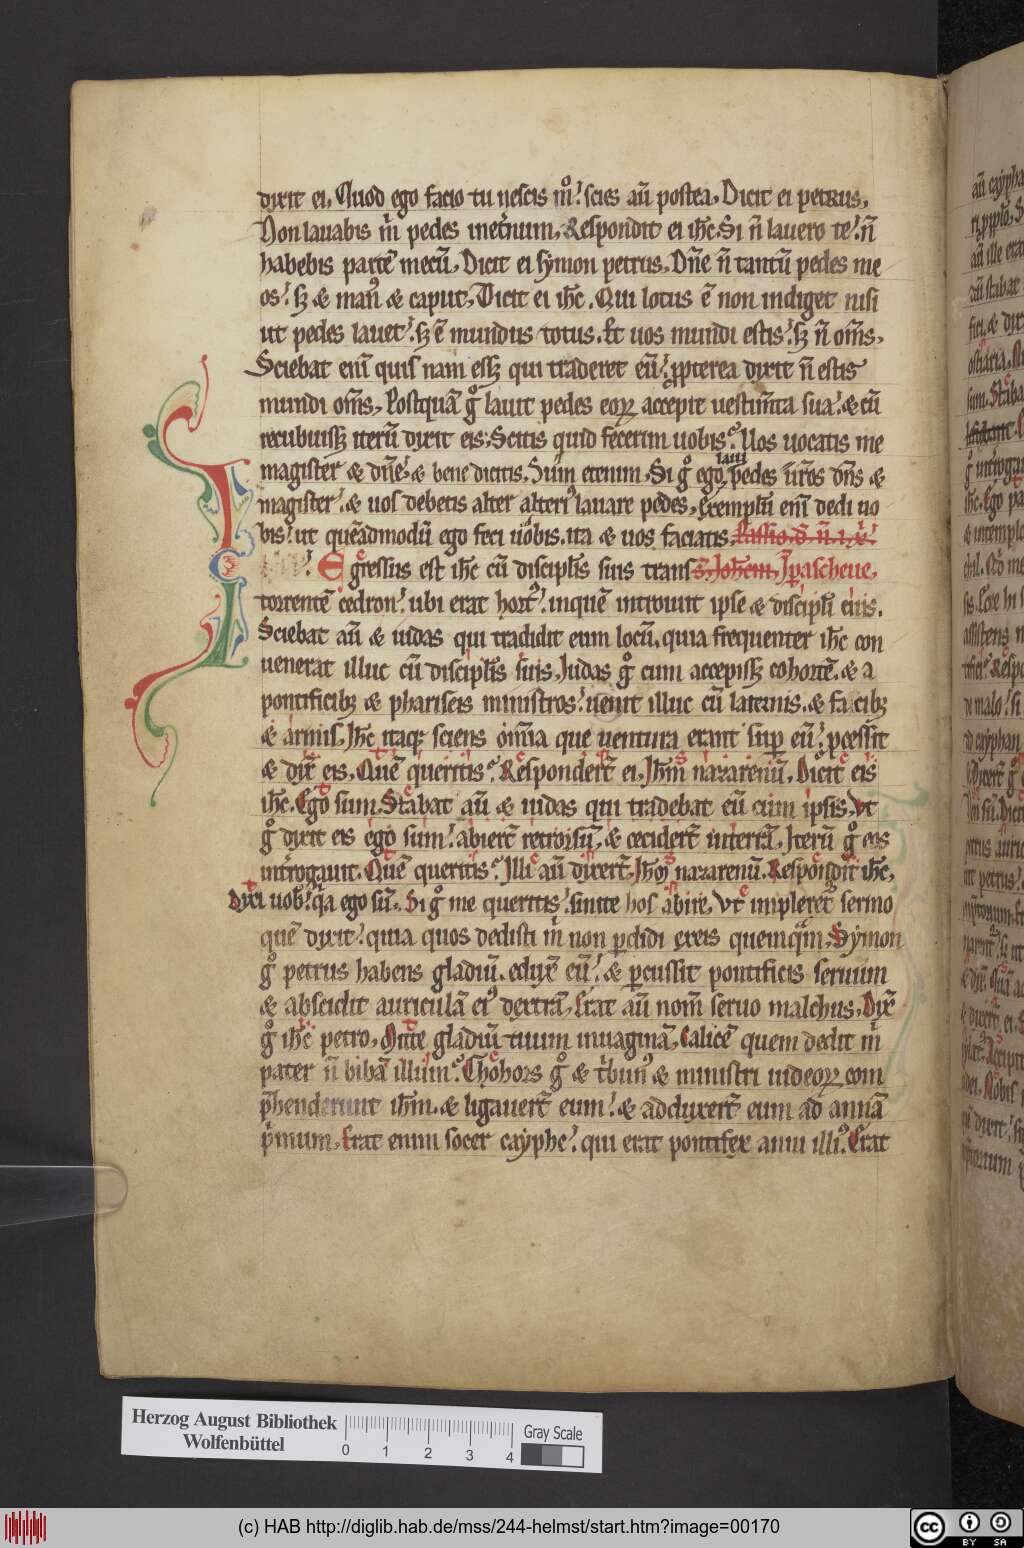 dixit ei. Quod ego facio tu nescis m̊. scies aū postea. Dicit ei petrus.
Non lauabis m̍ pedes inet̍num. Respondit ei ih̄c. Si n̄ lauero te. n̄
habebis partē mecū. Dicit ei symon petrus. Dn̄e n̄ tantū pedes me
os. sꝫ & man᷒ & caput. Dicit ei ih̄c. Qui lotus ē non indiget nisi
ut pedes lauet. sꝫ ē mundus totus. Et uos mundi estis. sꝫ n̄ om̄s.
Sciebat enī quis nam essꝫ qui traderet eū. ꝓpterea dixit n̄ estis
mundi om̄s. Postquā g̊ lauit pedes eoꝝ accepit uestim̄ta sua. & cū
recubuissꝫ iterū dixit eis. Scitis quid fecerim uobis. Uos uocatis me
magister & dn̄e. & bene dicitis. Sum etenim. Si g̊ ego laui pedes ur̄os dn̄s &
magister. & uos debetis alter alteri᷒ lauare pedes. exemplū enī dedi uo
bis. ut quēadmodū ego feci uobis. ita & uos faciatis. Passio d. n. i. x.
Egressus est ih̄c cū discipl̄is suis trans s. Joh̄em. In pascheue.
torrentē cedron. ubi erat hort᷒. inquē introiuit ipse & discipl̄i eius.
Sciebat aū & iudas qui tradidit eum locū. quia frequenter ih̄c con
uenerat illuc cū discipl̄is suis. Iudas g̊ cum accepissꝫ cohortē. & a
pontificibꝫ & phariseis ministros. uenit illuc cū laternis. & facibꝫ
& armis. Ih̄c itaqꝫ sciens om̄ia que uentura erant sup̄ eū. ꝓcessit
& dix̄ eis. Quē queritis. Responder̄t ei. Ih̄m nazarenū. Dicit eis
ih̄c. Ego sum. Stabat aū & iudas qui tradebat eū cum ipsis. Vt
g̊ dixit eis ego sum. abier̄t retrorsū. & cecider̄t interrā. Iterū g̊ eos
int̍rogauit. Quē queritis. Illi aū dixer̄t. Ih̄m nazarenū. Respondit ih̄c.
Dixi uob̄. q̍a ego sū. Si g̊ me queritis. sinite hos abire. Vt impleret᷒ sermo
quē dixit. quia quos dedisti m̍ non ꝑdidi exeis quemqͣm. Symon
g̊ petrus habens gladiū. eduxͭ eū. & ꝑcussit pontificis seruum
& abscidit auriculā ei᷒ dextrā. Erat aū nom̄ seruo malchus. Dix̄
g̊ ih̄c petro. Mitte gladiū tuum inuaginā. Calicē quem dedit m̍
pater n̄ bibā illum. Chohors g̊ & t̍bun᷒ & ministri iudeoꝝ com
p̄henderunt ih̄m. & ligauer̄t eum. & adduxer̄t eum ad annā
p̍mum. Erat enim socer cayphe. qui erat pontifex anni illi᷒. Erat
Herzog August Bibliothek
Wolfenbüttel
0 1 2 3 4
Gray Scale
(c) HAB http://diglib.hab.de/mss/244-helmst/start.htm?image=00170
cc BY SA